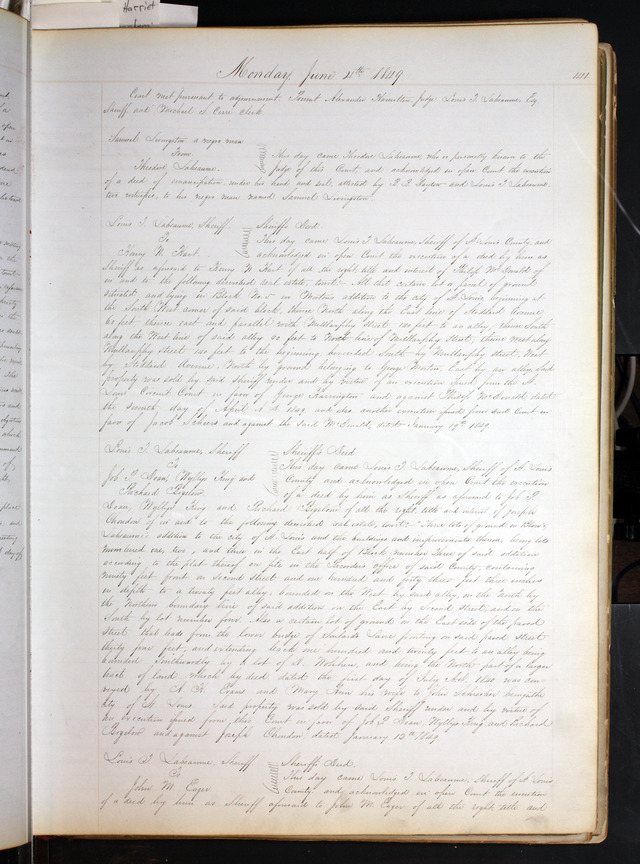 Harriet
Monday, June 11th 1849
Court met pursuant to adjournment. Present Alexander Hamilton, Judge Louis T. Labeaume, Esq
Sheriff and Michael S. Cerre clerk
Samuel Livingston a negro man
From
Theodore Labeaume.
This day came Theodore Labeaume who is personally known to the
Judge of this Court, and acknowledged in open Court the execution
of a deed of emancipation, under his hand and seal, attested by and Louis T. Labeaume,
two witnesses, to his negro man named Samuel Livingston.
Louis T. Labeaume, Sheriff.
To
Henry N. Hart.
Sheriffs Deed
This day came Louis T. Labeaume, Sheriff of St Louis County and
acknowledged in open Court the execution of a deed by him as
Sheriff as aforesaid to Henry N. Hart of all the right, title and interest of Philip McDonald of
in and to the following described real estate, towit: All that certain lot or parcel of ground
situated and lying in Block No 5 in addition to the city of St Louis, beginning at
the South West corner of said block, thence North along the East line of Stoddard Avenue
feet thence east and parallel with Mullanphy Street feet to an alley, thence South
along the West line of said alley feet to North line of Mullanphy Street, thence west along
Mullanphy street feet to the beginning, bounded South by Mullanphy street, West
by Stoddard Avenue, North by ground belonging to George East by an alley, said
property was sold by said sheriff under and by virtue of an execution issued from the St.
Louis Circuit Court in favor of George Harrington and against Philip McDonald dated
the seventh day of April A.D. 1849 and also another execution issued from said Court in
favor of Jacob Scheers and against the said McDonald, dated January 19th 1849.
Louis T. Labeaume, Sheriff
To
Job P. Doan, Wyllys King and
Richard Bigelow.
Sheriff's Deed.
This day came Louis T. Labeaume, Sheriff of St. Louis
County and acknowledged in open Court the execution
of a deed by him as Sheriff as aforesaid to Job P.
Doan, Wyllys King and Richard Bigelow of all the right, title and interest of Joseph
of in and to the following described real estate, towit: Three lots of ground in
Labeaume's addition to the city of St Louis and the buildings and improvements thereon, being lots
numbered one, two, and three in the East half of Block number Three of said addition
according to the plat thereof on file in the Recorders office of said County; containing
ninety feet front on second street and one hundred and forty three feet three inches
in depth to a twenty feet alley, bounded on the West by said alley, on the North by
the Northern boundary line of said addition on the East by Second Street, and on the
South by lot number four. Also a certain lot of ground on the East side of the paved
Street that leads from the lower bridge of Lane fronting on said paved street
thirty four feet, and extending back one hundred and twenty feet to an alley being
bounded Southwardly by a lot of and being the North part of a larger
tract of land which by deed dated the first day of July A.D. 1840 was con-
veyed by A. H. Evans and Mary Ann his wife to John of the
City of St. Louis. Said property was sold by said Sheriff under and by virtue of
an execution issued from this Court in favor of Job P. Doan, Wyllys King and Richard
Bigelow and against Joseph dated January 12th 1849
Louis T. Labeaume, Sheriff
To
John M. Eager
Sheriffs Deed.
This day came Louis T. Labeaume, Sheriff of St Louis
County and acknowledged in open Court the execution
of a deed by him as Sheriff aforesaid to John M. Eager of all the right, title and